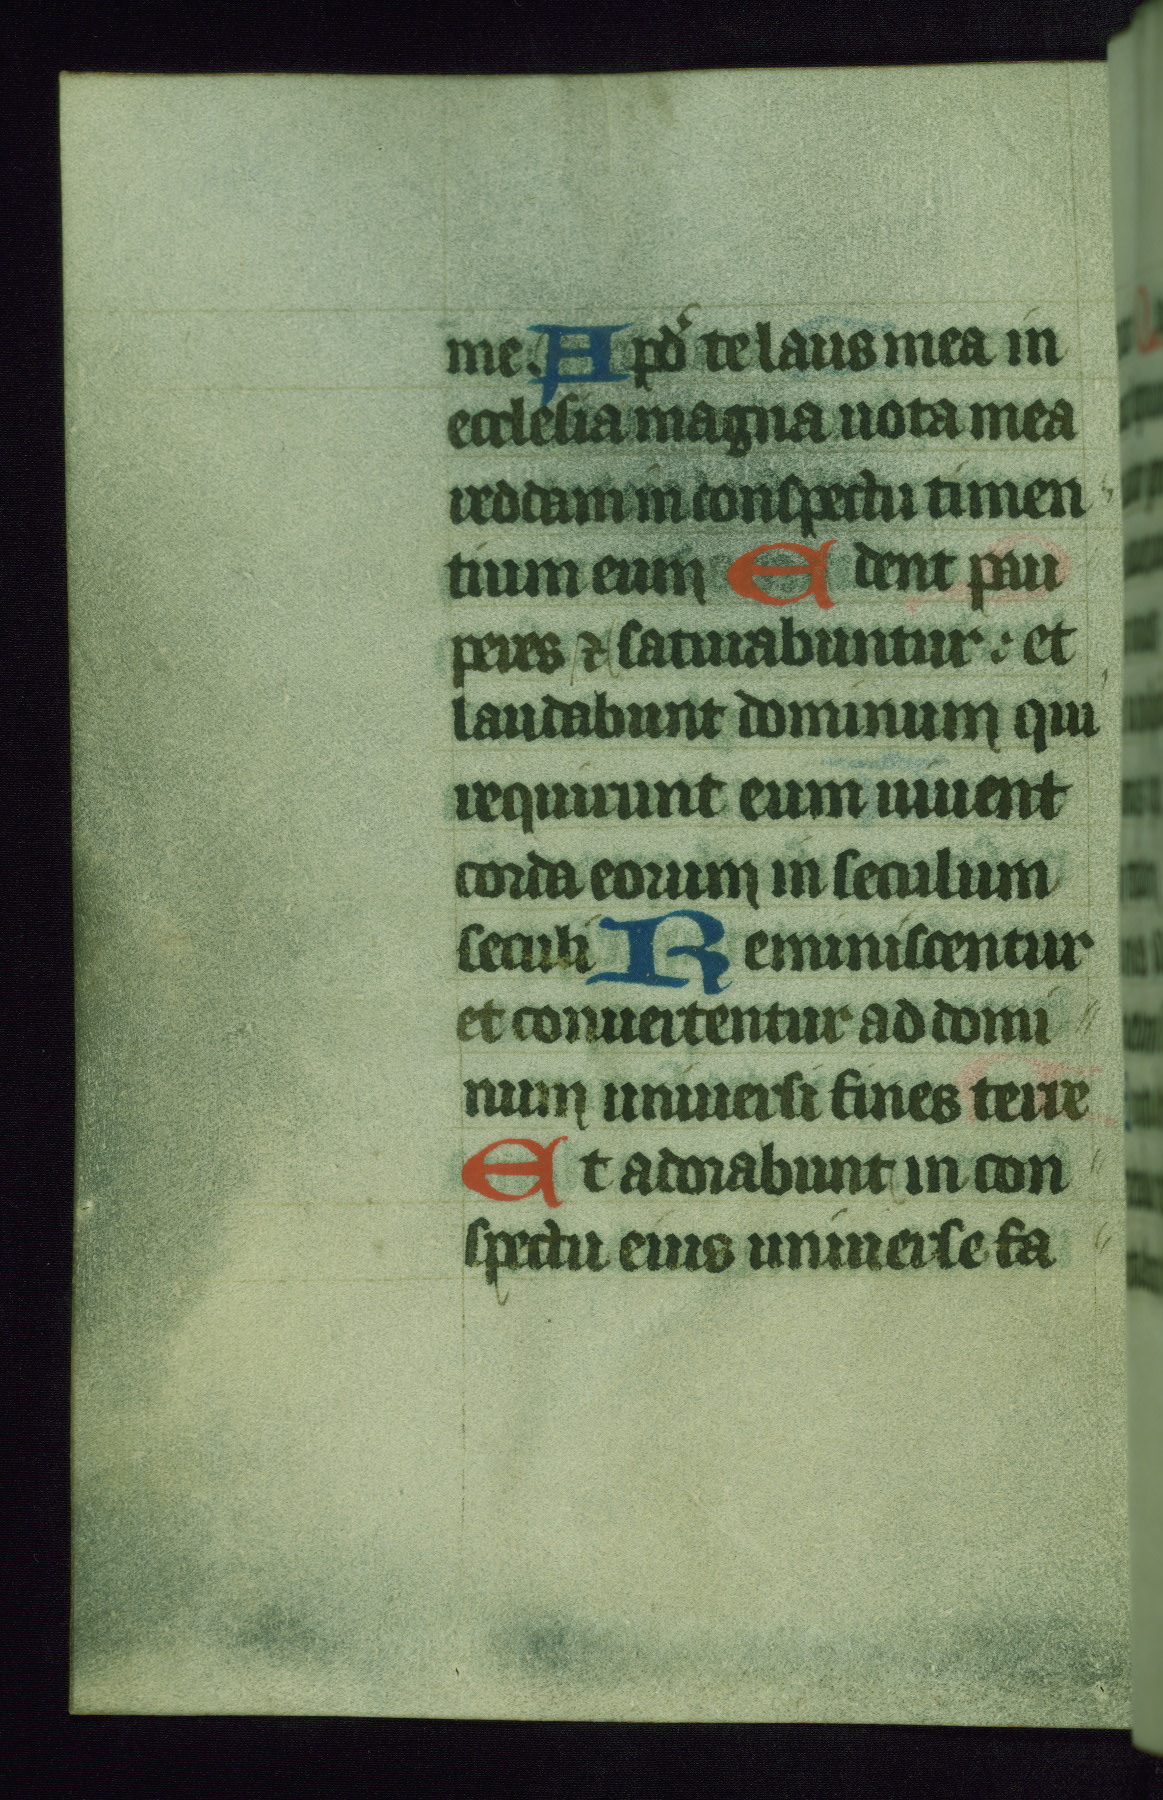 me. A pd' te laus mea in
ecclesia magna uota mea
reddam in conspectu timen
tium eum E dent pau
peres ⁊ saturabuntur : et
laudabunt dominum qui
requirunt eum uiuent
corda eorum in seculum
seculi R eminiscentur
et conuertentur ad domi
num uniuersi fines terre
E t adorabunt in con
spectu eius uniuerse fa